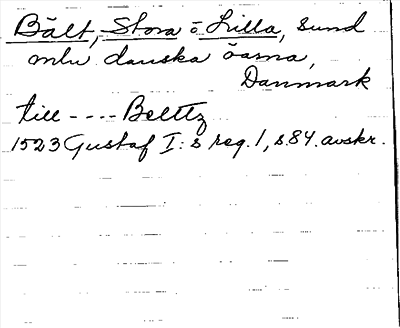 Bält, Stora o Lilla, sund
mlu danska öarna,
Danmark
till ---- Belttz
1523 Gustaf I:s reg. 1, s 84. avskr.